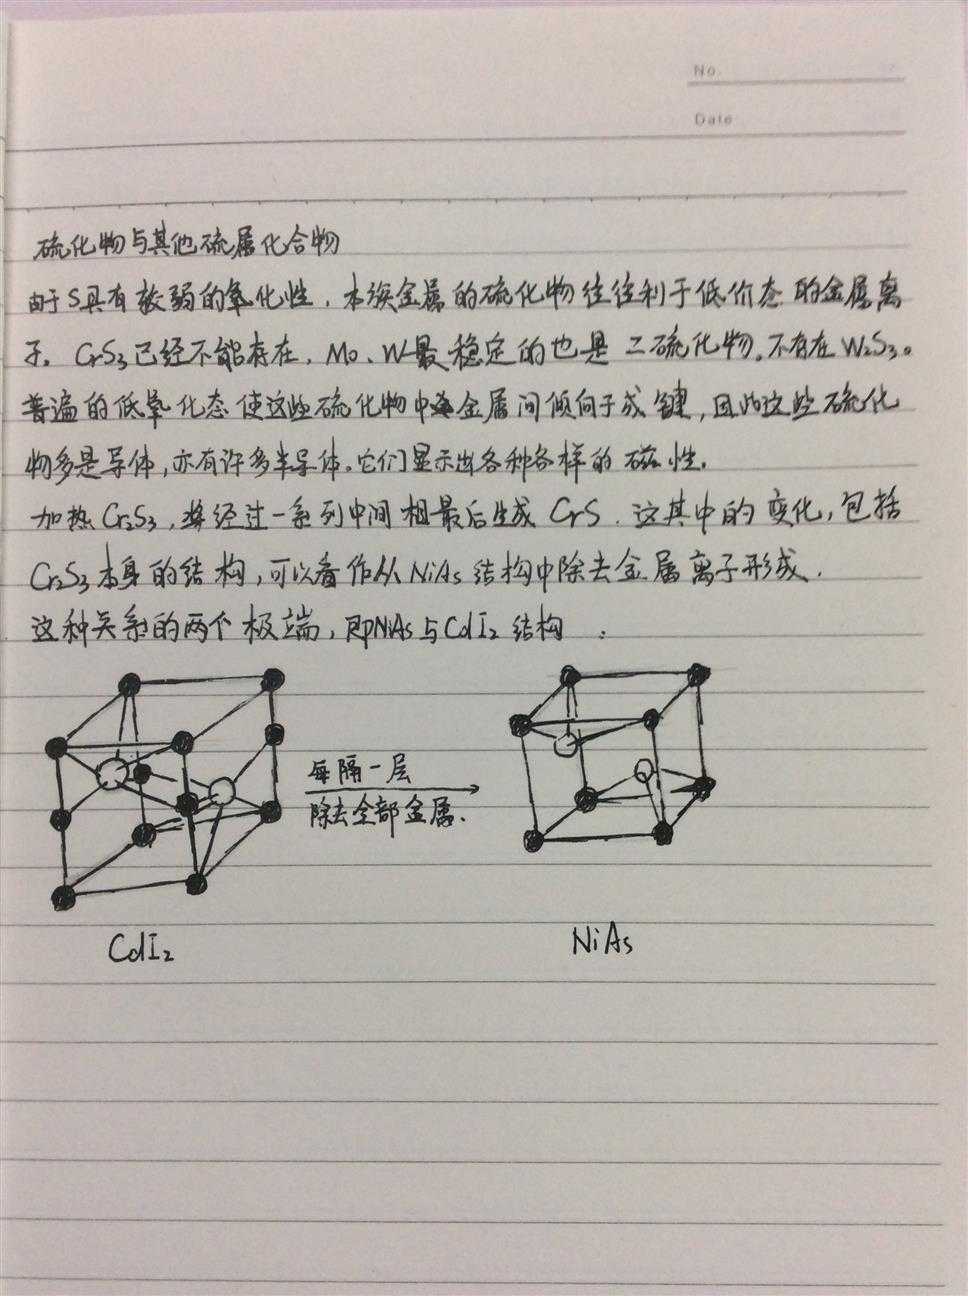 No.
Date
硫化物与其他硫属化合物
由于S具有较弱的氧化性，本族金属的硫化物往往利于低价态的金属离
子。CrS₃已经不能存在，Mo、W最稳定的也是二硫化物。不存在W₂S₃。
普遍的低氧化态使这些硫化物中金属间倾向于成键，因此这些硫化
物多是导体，亦有许多半导体。它们显示出各种各样的磁性。
加热Cr₂S₃，将经过一系列中间相最后生成CrS．这其中的变化，包括
Cr₂S₃本身的结构，可以看作从NiAs结构中除去金属离子形成．
这种关系的两个极端，即NiAs与CdI₂结构：
每隔一层
除去全部金属．
CdI₂
NiAs